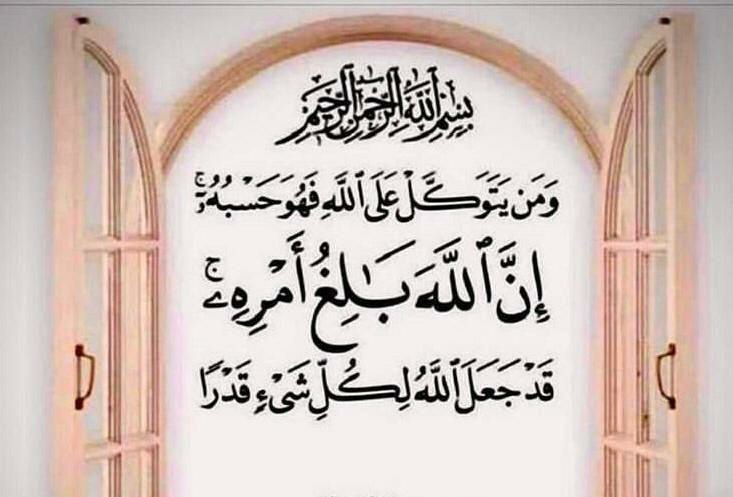 بِسْمِ اللَّهِ الرَّحْمَٰنِ الرَّحِيمِ
وَمَن يَتَوَكَّلْ عَلَى ٱللَّهِ فَهُوَ حَسْبُهُۥٓ ۚ
إِنَّ ٱللَّهَ بَٰلِغُ أَمْرِهِۦ ۚ
قَدْ جَعَلَ ٱللَّهُ لِكُلِّ شَىْءٍ قَدْرًا